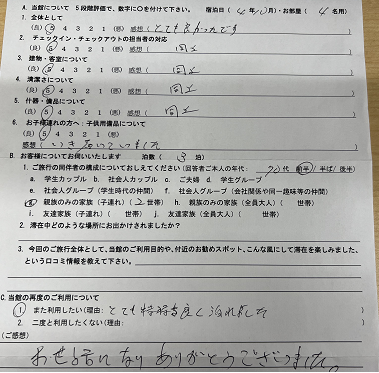 A. 当館について 5段階評価で、数字に○を付けて下さい。 宿泊日( 年 月)・お部屋( 名用)
1. 全体として
(良) 5 4 3 2 1 (悪) 感想( とても良かったです )
2. チェックイン・チェックアウトの担当者の対応
(良) 5 4 3 2 1 (悪) 感想( 同上 )
3. 建物・客室について
(良) 5 4 3 2 1 (悪) 感想( 同上 )
4. 清潔さについて
(良) 5 4 3 2 1 (悪) 感想( 同上 )
5. 什器・備品について
(良) 5 4 3 2 1 (悪) 感想( 同上 )
6. お子様連れの方へ:子供用備品について
(良) 5 4 3 2 1 (悪)
感想( )
B. お客様についてお伺いいたします 泊数( 3 泊)
1. ご旅行の同伴者の構成についておしえてください(回答者ご本人の年代: 代 前半/半ば/後半)
a. 学生カップル b. 社会人カップル c. ご夫婦 d. 学生グループ
e. 社会人グループ(学生時代の仲間) f. 社会人グループ(会社関係や同一趣味等の仲間)
g 親族のみの家族(子連れ)( 2 世帯) h. 親族のみの家族(全員大人)( 世帯)
i. 友達家族(子連れ)( 世帯) j. 友達家族(全員大人)( 世帯)
2. 滞在中どのような場所にお出かけされましたか?
3. 今回のご旅行全体として、当館のご利用目的や、付近のお勧めスポット、こんな風にして滞在を楽しみました、
という口コミ情報を教えて下さい。
C. 当館の再度のご利用について
1. また利用したい(理由: とても気持ち良く泊れました
2. 二度と利用したくない(理由:
(ご感想)
お世話になり ありがとうございました。